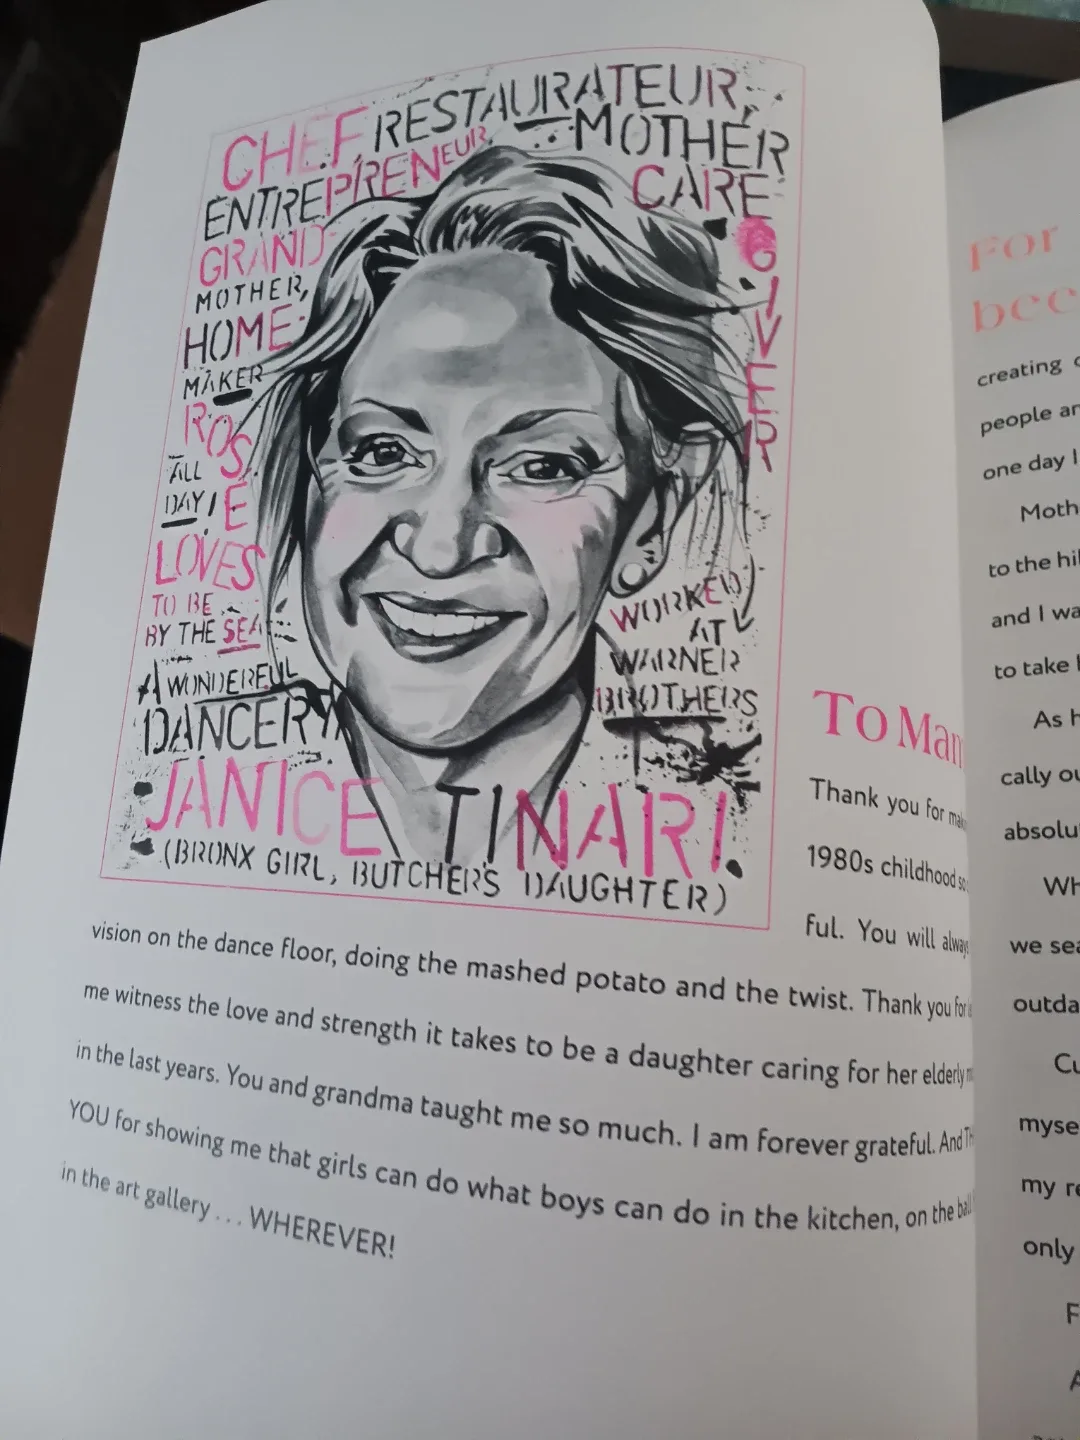 CHEF, RESTAURATEUR,
ENTREPRENEUR,
MOTHER
CARE-
GIVER
GRAND-
MOTHER,
HOME-
MAKER
ROSE
ALL
DAY!
LOVES
TO BE
BY THE SEA
A WONDERFUL
DANCER
WORKED
AT
WARNER
BROTHERS
JANICE TINARI.
(BRONX GIRL, BUTCHER'S DAUGHTER)
To
Thank you for
1980s childhood
ful. You will always
vision on the dance floor, doing the mashed potato and the twist. Thank you for
me witness the love and strength it takes to be a daughter caring for her elderly
in the last years. You and grandma taught me so much. I am forever grateful. And
YOU for showing me that girls can do what boys can do in the kitchen, on the
in the art gallery ... WHEREVER!
For
creating
people
one day I
to the
and I
to take
As
cally
we
my
only